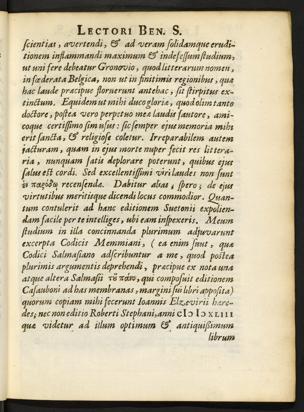 LECTORI BEN. S.
scientias, avertendi, & ad veram solidamque erudi-
tionem inflammandi maximum & indefessum studium,
ut uni fere debeatur Gronovio, quod litterarum nomen,
in fœderata Belgica, non ut in finitimis regionibus, quæ
hac laude præcipue floruerunt antehac, sit stirpitus ex-
tinctum. Equidem ut mihi duco gloriæ, quod olim tanto
doctore, postea vero perpetuo meæ laudis fautore, ami-
coque certissimo sim usus: sic semper ejus memoria mihi
erit sancta, & religiose coletur. Irreparabilem autem
jacturam, quam in ejus morte nuper fecit res littera-
ria, nunquam satis deplorare poterunt, quibus ejus
salus est cordi. Sed excellentissimi viri laudes non sunt
ἐν παρόδῳ recensendæ. Dabitur alias, spero, de ejus
virtutibus meritisque dicendi locus commodior. Quan-
tum contulerit ad hanc editionem Suetonii expolien-
dam facile per te intelliges, ubi eam inspexeris. Meum
studium in illa concinnanda plurimum adjuvarunt
excerpta Codicis Memmiani, (ea enim sunt, quæ
Codici Salmasiano adscribuntur a me, quod postea
plurimis argumentis deprehendi, præcipue ex nota una
atque altera Salmasii τοῦ πάνυ, qui composuit editionem
Casauboni ad has membranas, margini sui libri apposita)
quorum copiam mihi fecerunt Ioannis Elzevirii hære-
des; nec non editio Roberti Stephani, anni CIↃ IↃ XLIII
quæ videtur ad illum optimum & antiquissimum
librum